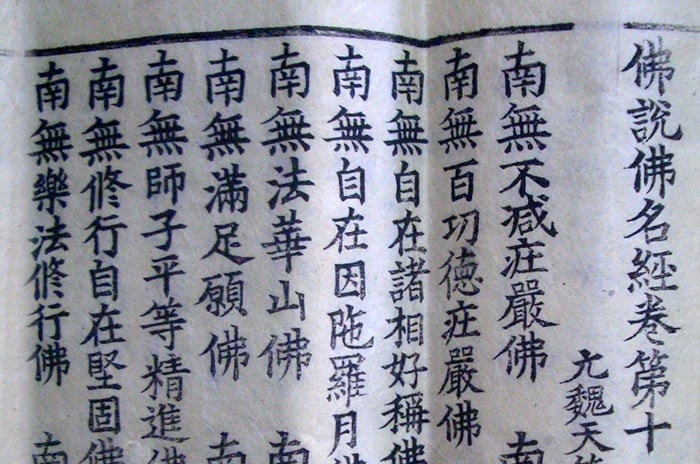 佛說佛名經卷第十
元魏天竺
南無不減庄嚴佛 南
南無百功德庄嚴佛
南無自在諸相好稱佛
南無自在因陁羅月佛
南無法華山佛 南
南無滿足願佛 南
南無師子平等精進佛
南無修行自在堅固佛
南無樂法修行佛 南